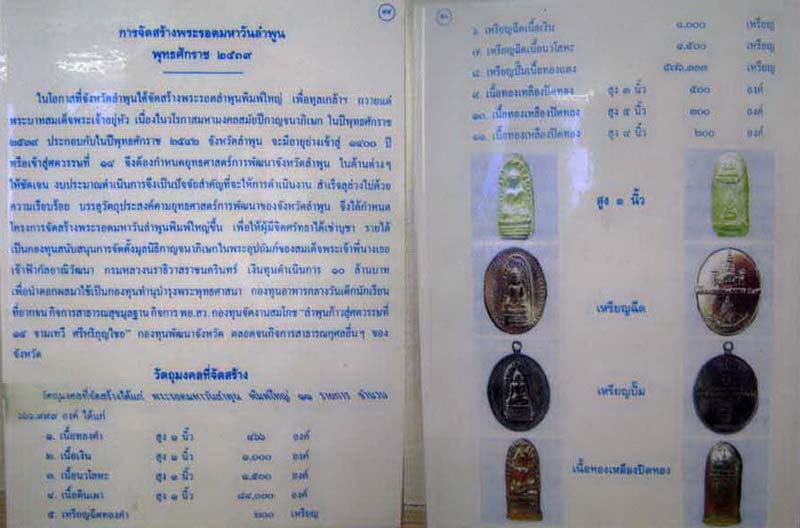 ๑๙
การจัดสร้างพระรอดมหาวันลำพูน
พุทธศักราช ๒๕๓๙
ในโอกาสที่จังหวัดลำพูนได้จัดสร้างพระรอดลำพูนพิมพ์ใหญ่ เพื่อทูลเกล้าฯ ถวายแด่
พระบาทสมเด็จพระเจ้าอยู่หัว เนื่องในวโรกาสมหามงคลสมัยปีกาญจนาภิเษก ในปีพุทธศักราช
๒๕๓๙ ประกอบกับในปีพุทธศักราช ๒๕๔๒ จังหวัดลำพูน จะมีอายุย่างเข้าสู่ ๑๔๐๐ ปี
หรือเข้าสู่ศตวรรษที่ ๑๔ จึงต้องกำหนดยุทธศาสตร์การพัฒนาจังหวัดลำพูน ในด้านต่างๆ
ให้ชัดเจน งบประมาณดำเนินการจึงเป็นปัจจัยสำคัญที่จะให้การดำเนินงาน สำเร็จลุล่วงไปด้วย
ความเรียบร้อย บรรลุวัตถุประสงค์ตามยุทธศาสตร์การพัฒนาของจังหวัดลำพูน จึงได้กำหนด
โครงการจัดสร้างพระรอดมหาวันลำพูนพิมพ์ใหญ่ขึ้น เพื่อให้ผู้มีจิตศรัทธาได้เช่าบูชา รายได้
เป็นกองทุนสนับสนุนการจัดตั้งมูลนิธิกาญจนาภิเษกในพระอุปถัมภ์ของสมเด็จพระเจ้าพี่นางเธอ
เจ้าฟ้ากัลยาณิวัฒนา กรมหลวงนราธิวาสราชนครินทร์ เงินทุนดำเนินการ ๑๐ ล้านบาท
เพื่อนำดอกผลมาใช้เป็นกองทุนทำนุบำรุงพระพุทธศาสนา กองทุนอาหารกลางวันเด็กนักเรียน
ที่ยากจน กิจการสาธารณสุขมูลฐาน กิจการ พอ.สว. กองทุนจัดงานสมโภช "ลำพูนก้าวสู่ศตวรรษที่
๑๔ จามเทวี ศรีหริภุญไชย" กองทุนพัฒนาจังหวัด ตลอดจนกิจการสาธารณกุศลอื่นๆ ของ
จังหวัด
วัตถุมงคลที่จัดสร้าง
วัตถุมงคลที่จัดสร้างได้แก่ พระรอดมหาวันลำพูน พิมพ์ใหญ่ ๑๑ รายการ จำนวน
องค์ ได้แก่
๑. เนื้อทองคำ สูง ๑ นิ้ว ๔๖๖ องค์
๒. เนื้อเงิน สูง ๑ นิ้ว ๑,๐๐๐ องค์
๓. เนื้อนวโลหะ สูง ๑ นิ้ว ๑,๕๐๐ องค์
๔. เนื้อดินเผา สูง ๑ นิ้ว ๘๔,๐๐๐ องค์
๕. เหรียญฉีดทองคำ ๒๐๐ เหรียญ
๒๐
๖. เหรียญฉีดเนื้อเงิน ๑,๐๐๐ เหรียญ
๗. เหรียญฉีดเนื้อนวโลหะ ๑,๕๐๐ เหรียญ
๘. เหรียญปั๊มเนื้อทองแดง เหรียญ
๙. เนื้อทองเหลืองปิดทอง สูง ๓ นิ้ว ๕๐๐ องค์
๑๐. เนื้อทองเหลืองปิดทอง สูง ๕ นิ้ว ๓๐๐ องค์
๑๑. เนื้อทองเหลืองปิดทอง สูง ๙ นิ้ว ๒๐๐ องค์
สูง ๑ นิ้ว
เหรียญฉีด
เหรียญปั๊ม
เนื้อทองเหลืองปิดทอง